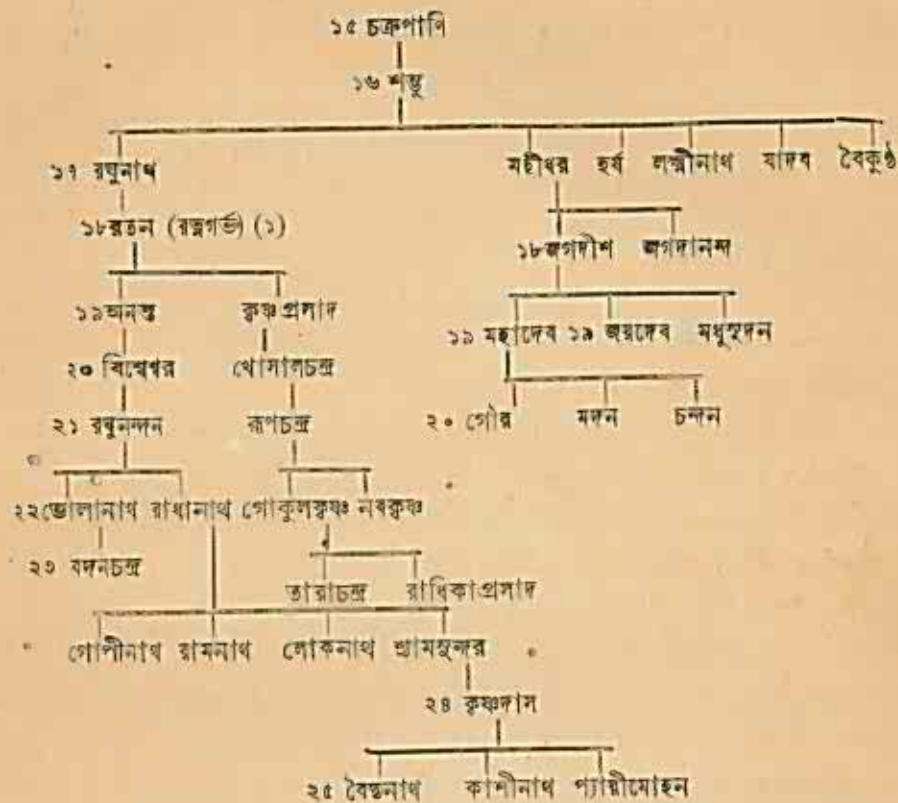 ১৫ চক্রপাণি
১৬ শম্ভু
১৭ রঘুনাথ মহীধর হর্ষ লক্ষ্মীনাথ যাদব বৈকুণ্ঠ
১৮রতন (রত্নগর্ভ) (১) ১৮জগদীশ জগদানন্দ
১৯অনন্ত কৃষ্ণপ্রসাদ ১৯ মহাদেব ১৯ জয়দেব মধুসূদন
২০ বিশ্বেশ্বর খোসালচন্দ্র
২১ রঘুনন্দন রূপচন্দ্র ২০ গৌর মদন চন্দন
২২ভোলানাথ রাধানাথ গোকুলকৃষ্ণ নবকৃষ্ণ
২৩ বদনচন্দ্র
তারাচন্দ্র রাধিকাপ্রসাদ
গোপীনাথ রামনাথ লোকনাথ শ্যামসুন্দর
২৪ কৃষ্ণদাস
২৫ বৈদ্যনাথ কাশীনাথ প্যারীমোহন